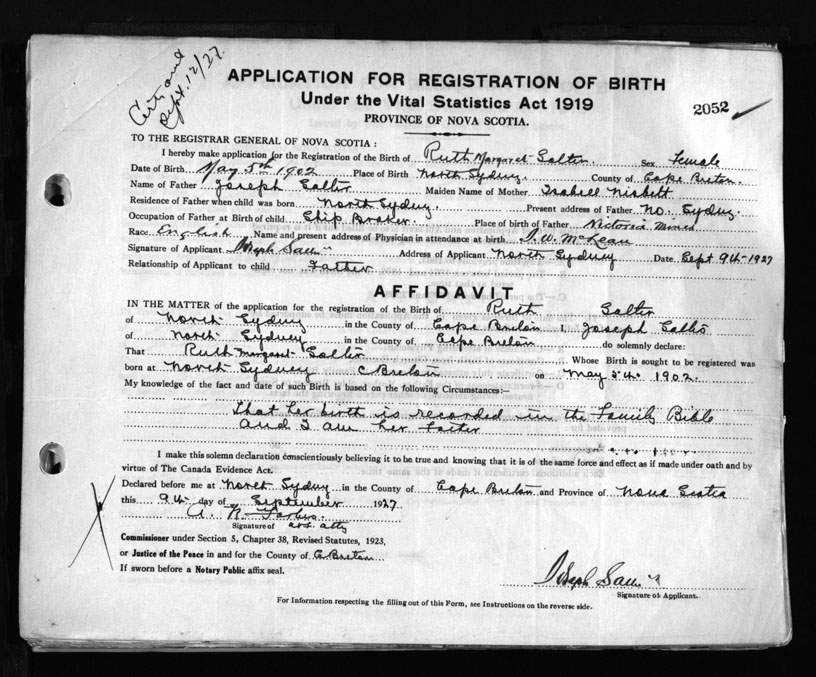 Sept. 12/27.
APPLICATION FOR REGISTRATION OF BIRTH
Under the Vital Statistics Act 1919
PROVINCE OF NOVA SCOTIA.
2052
TO THE REGISTRAR GENERAL OF NOVA SCOTIA :
I hereby make application for the Registration of the Birth of Ruth Margaret Salter. Sex Female
Date of Birth May 5th 1902 Place of Birth North Sydney. County of Cape Breton.
Name of Father Joseph Salter Maiden Name of Mother Isabell Nisbett
Residence of Father when child was born North Sydney. Present address of Father No. Sydney.
Occupation of Father at Birth of child Ship Broker. Place of birth of Father Victoria Mines
Race English Name and present address of Physician in attendance at birth McLean
Signature of Applicant Joseph Address of Applicant North Sydney Date Sept 9th 1927
Relationship of Applicant to child Father
AFFIDAVIT
IN THE MATTER of the application for the registration of the Birth of Ruth Salter
of North Sydney in the County of Cape Breton I, Joseph Salter
of North Sydney in the County of Cape Breton do solemnly declare:
That Ruth Margaret Salter Whose Birth is sought to be registered was
born at North Sydney C Breton on May 5th 1902.
My knowledge of the fact and date of such Birth is based on the following Circumstances:—
That her birth is recorded in the Family Bible
and I am her Father
I make this solemn declaration conscientiously believing it to be true and knowing that it is of the same force and effect as if made under oath and by
virtue of The Canada Evidence Act.
Declared before me at North Sydney in the County of Cape Breton and Province of Nova Scotia
this 9th day of September 1927
A. R.
Signature of
Commissioner under Section 5, Chapter 38, Revised Statutes, 1923,
or Justice of the Peace in and for the County of C. Breton
If sworn before a Notary Public affix seal.
Joseph
Signature of Applicant.
For Information respecting the filling out of this Form, see Instructions on the reverse side.